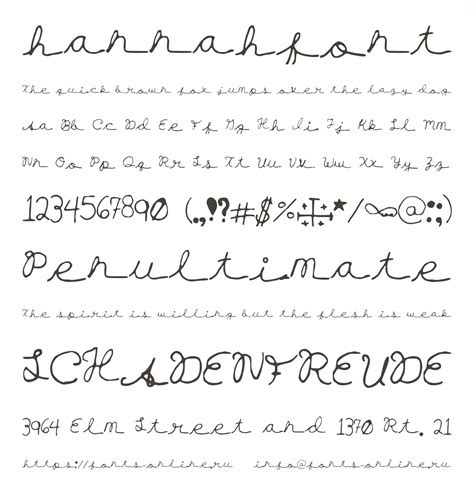 hannahfont
The quick brown fox jumps over the lazy dog
Aa Bb Cc Dd Ee Ff Gg Hh Ii Jj Kk Ll Mm
Nn Oo Pp Qq Rr Ss Tt Uu Vv Ww Xx Yy Zz
1234567890 (.,!?#$%★/@:;)
Penultimate
The spirit is willing but the flesh is weak
SCHADENFREUDE
3964 Elm Street and 1370 Rt. 21
https://fonts-online.ru info@fonts-online.ru